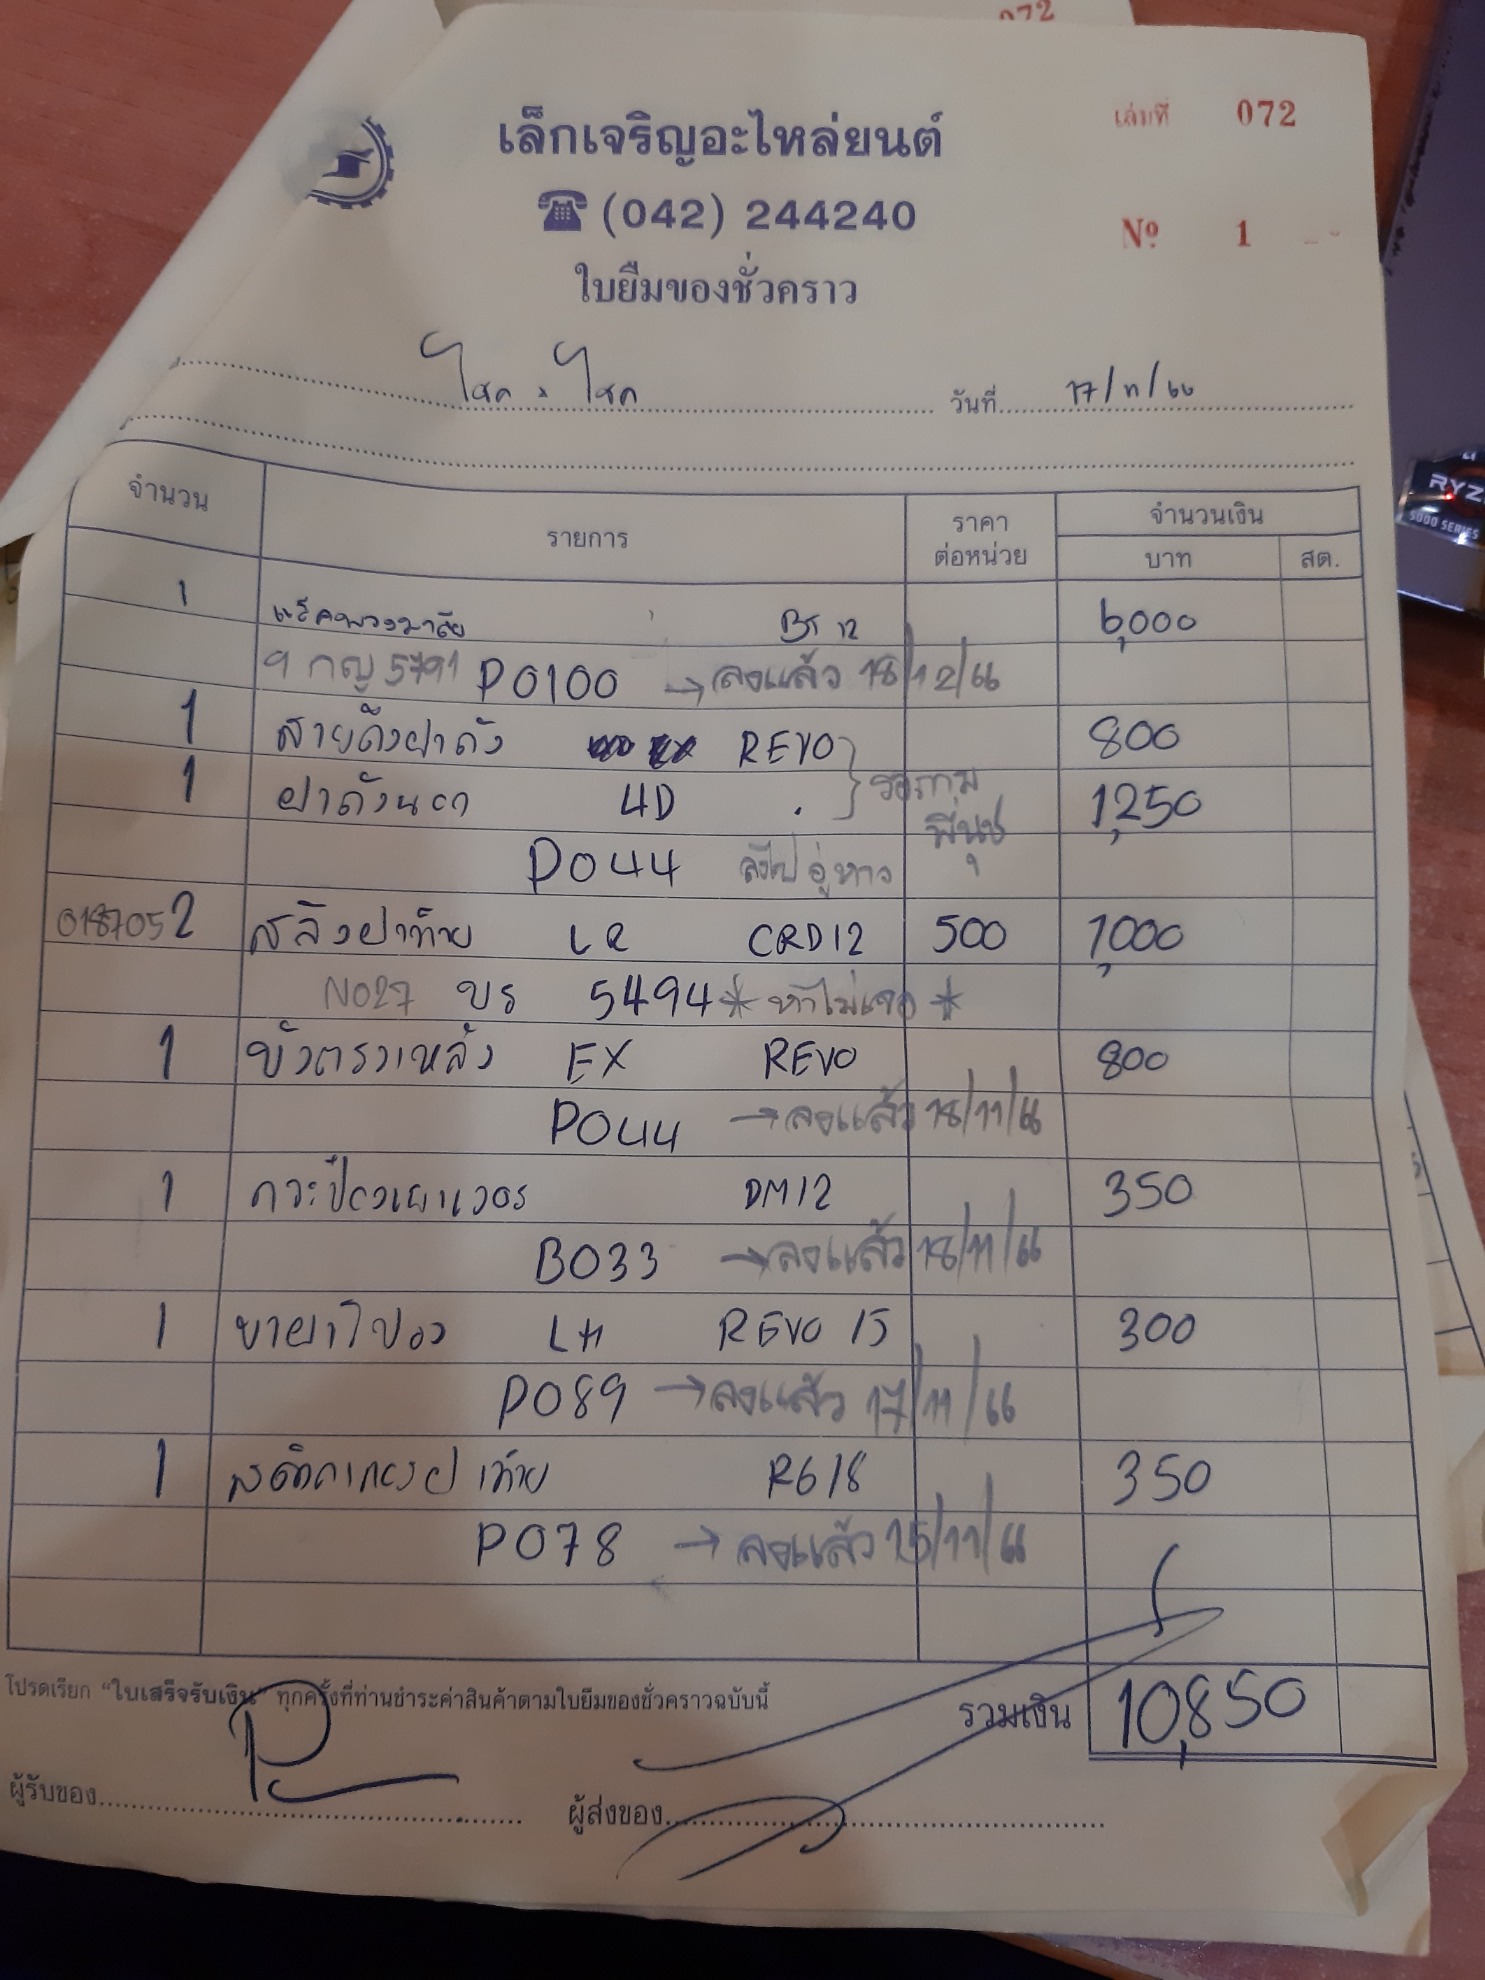 072
เล่มที่ 072
เล็กเจริญอะไหล่ยนต์
☎ (042) 244240
Nº 1
ใบยืมของชั่วคราว
โชค . โชค วันที่ 17/11/66
จำนวน รายการ ราคาต่อหน่วย จำนวนเงิน
บาท สต.
1 แร็คพวงมาลัย BT 12 6,000
9 กญ 5791 P0100 → ลงแล้ว 18/12/66
1 สายดึงฝาถัง REVO 800
1 ฝาถังนอก 4D . 1,250
พี่นุช
P044
0187052 สลิงฝาท้าย LR CRD12 500 1,000
N027 บร 5494 * หาไม่เจอ *
1 บังตรงหลัง EX REVO 800
P044 → ลงแล้ว 18/11/66
1 DM12 350
B033 → ลงแล้ว 18/11/66
1 LH REVO 15 300
P089 → ลงแล้ว 17/11/66
1 R618 350
P078 → ลงแล้ว 15/11/66
โปรดเรียก "ใบเสร็จรับเงิน" ทุกครั้งที่ท่านชำระค่าสินค้าตามใบยืมของชั่วคราวฉบับนี้ รวมเงิน 10,850
ผู้รับของ ผู้ส่งของ
RYZ
5000 SERIES